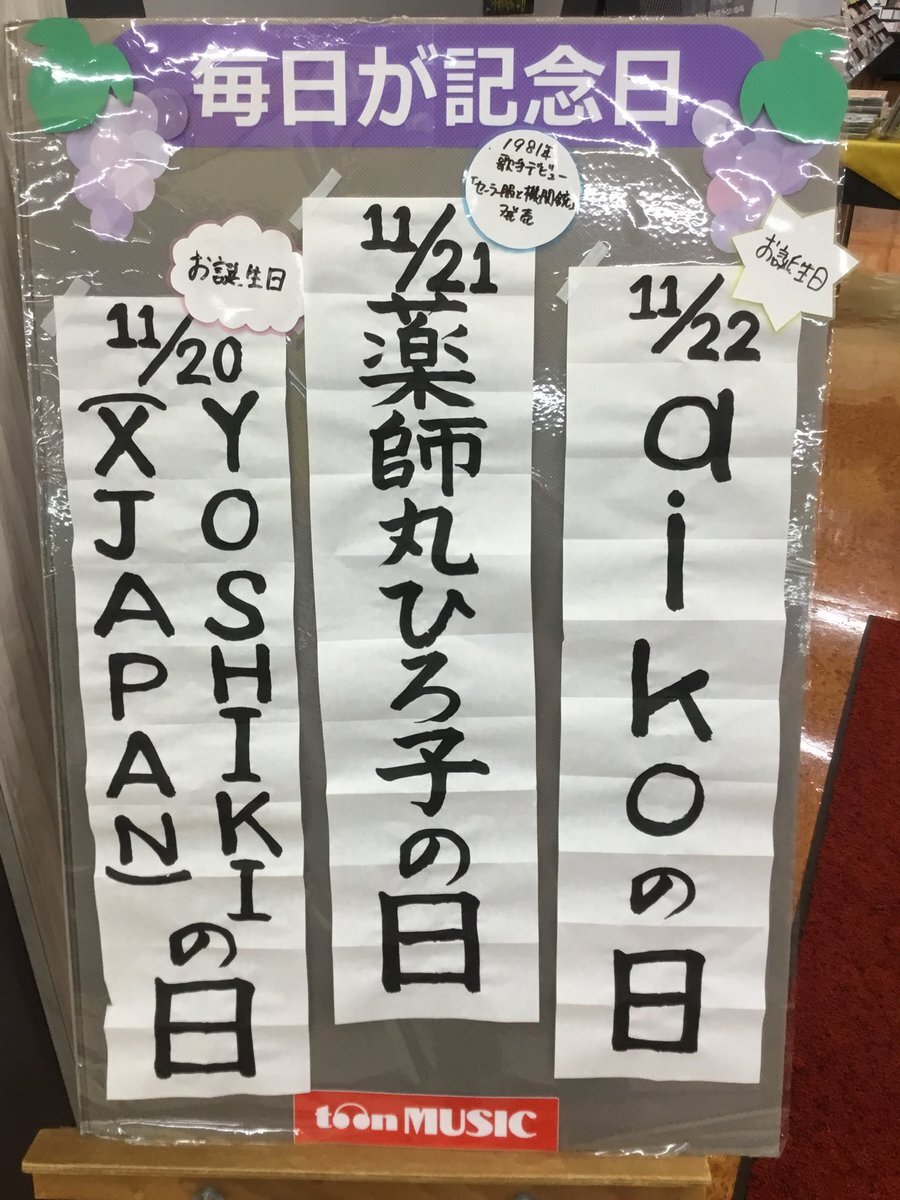 毎日が記念日
お誕生日
11/20
YOSHIKI
(X JAPAN)
の日
1981年
歌手デビュー
「セーラー服と機関銃」
発売
11/21
薬師丸ひろ子の日
お誕生日
11/22
aikoの日
toon MUSIC